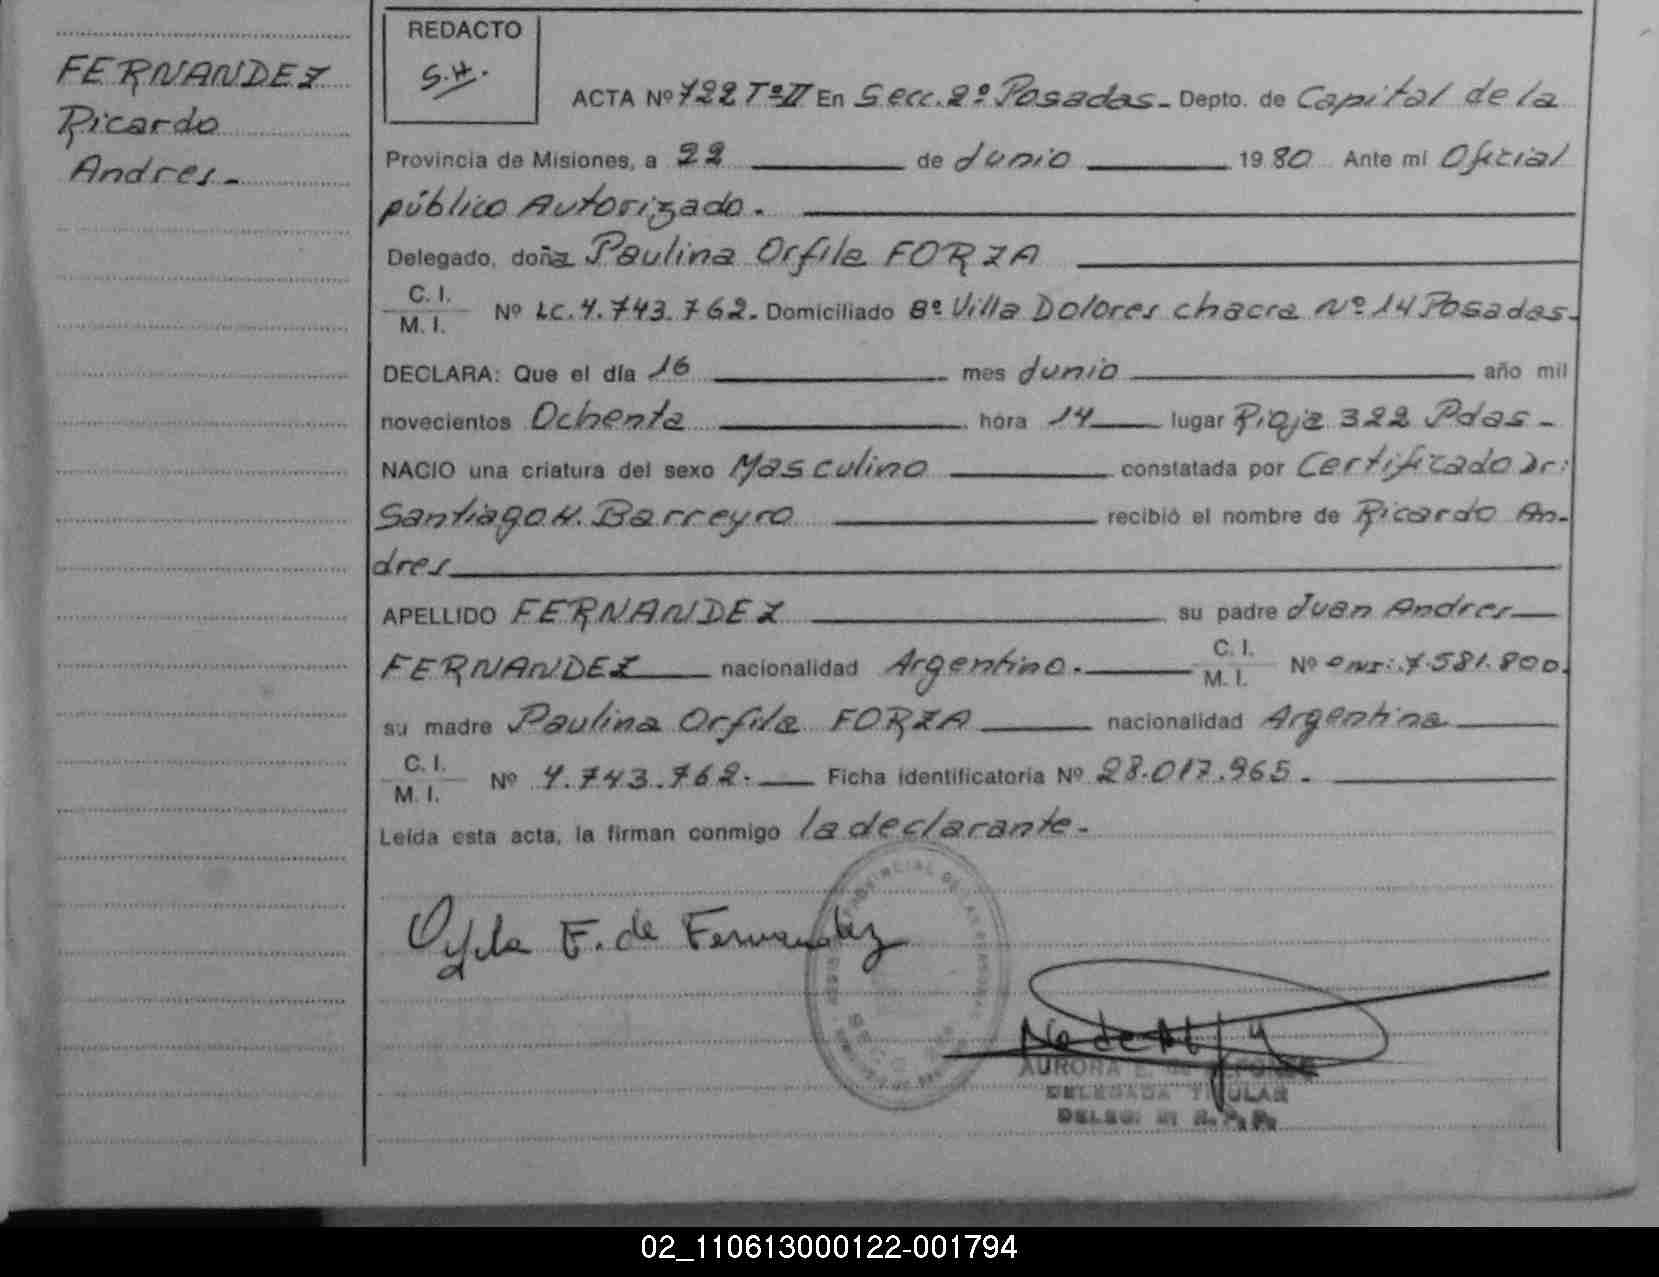 FERNANDEZ
Ricardo
Andres.-
REDACTO
S.H.
ACTA Nº 722 Tº II En Secc. 2º Posadas.- Depto. de Capital de la
Provincia de Misiones, a 22 de Junio 1980 Ante mi Oficial
público Autorizado.
Delegado, doña Paulina Orfila FORZA
C. I.
M. I. Nº LC. 4.743.762. Domiciliado Bº Villa Dolores chacra Nº 14 Posadas.
DECLARA: Que el día 16 mes Junio año mil
novecientos Ochenta hora 14 lugar Rioja 322 Pdas -
NACIO una criatura del sexo Masculino constatada por Certificado Dr:
Santiago H. Barreyro recibió el nombre de Ricardo An-
dres
APELLIDO FERNANDEZ su padre Juan Andres
FERNANDEZ nacionalidad Argentino.- C. I.
M. I. Nº DNI: 7.581.800.
su madre Paulina Orfila FORZA nacionalidad Argentina
C. I.
M. I. Nº 4.743.762. Ficha identificatoria Nº 28.017.965.
Leída esta acta, la firman conmigo la declarante.-
F. de Fernandez
AURORA E. de
DELEGADA TITULAR
02_110613000122-001794